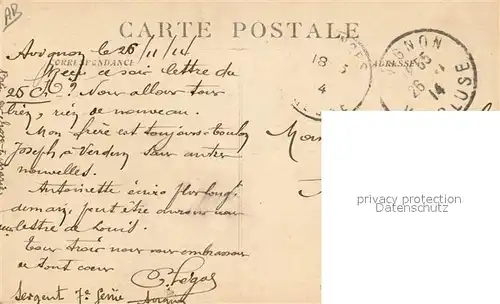 AR
CARTE POSTALE
CORRESPONDANCE
ADRESSE
Avignon le 26/11/14
Reçu ce soir lettre du
26 Ct? Nous allons tous
bien, rien de nouveau.
Mon frère est toujours à Toulon
Joseph à Verdun sans autres
nouvelles.
Antoinette écrira plus longt
demain, peut être aurons nous
lettre de Louis.
Tous trois nous vous embrassons
de tout coeur
Sergent 7e Génie
Avignon
18
4
AVIGNON
26
14
VAUCLUSE
privacy protection
Datenschutz